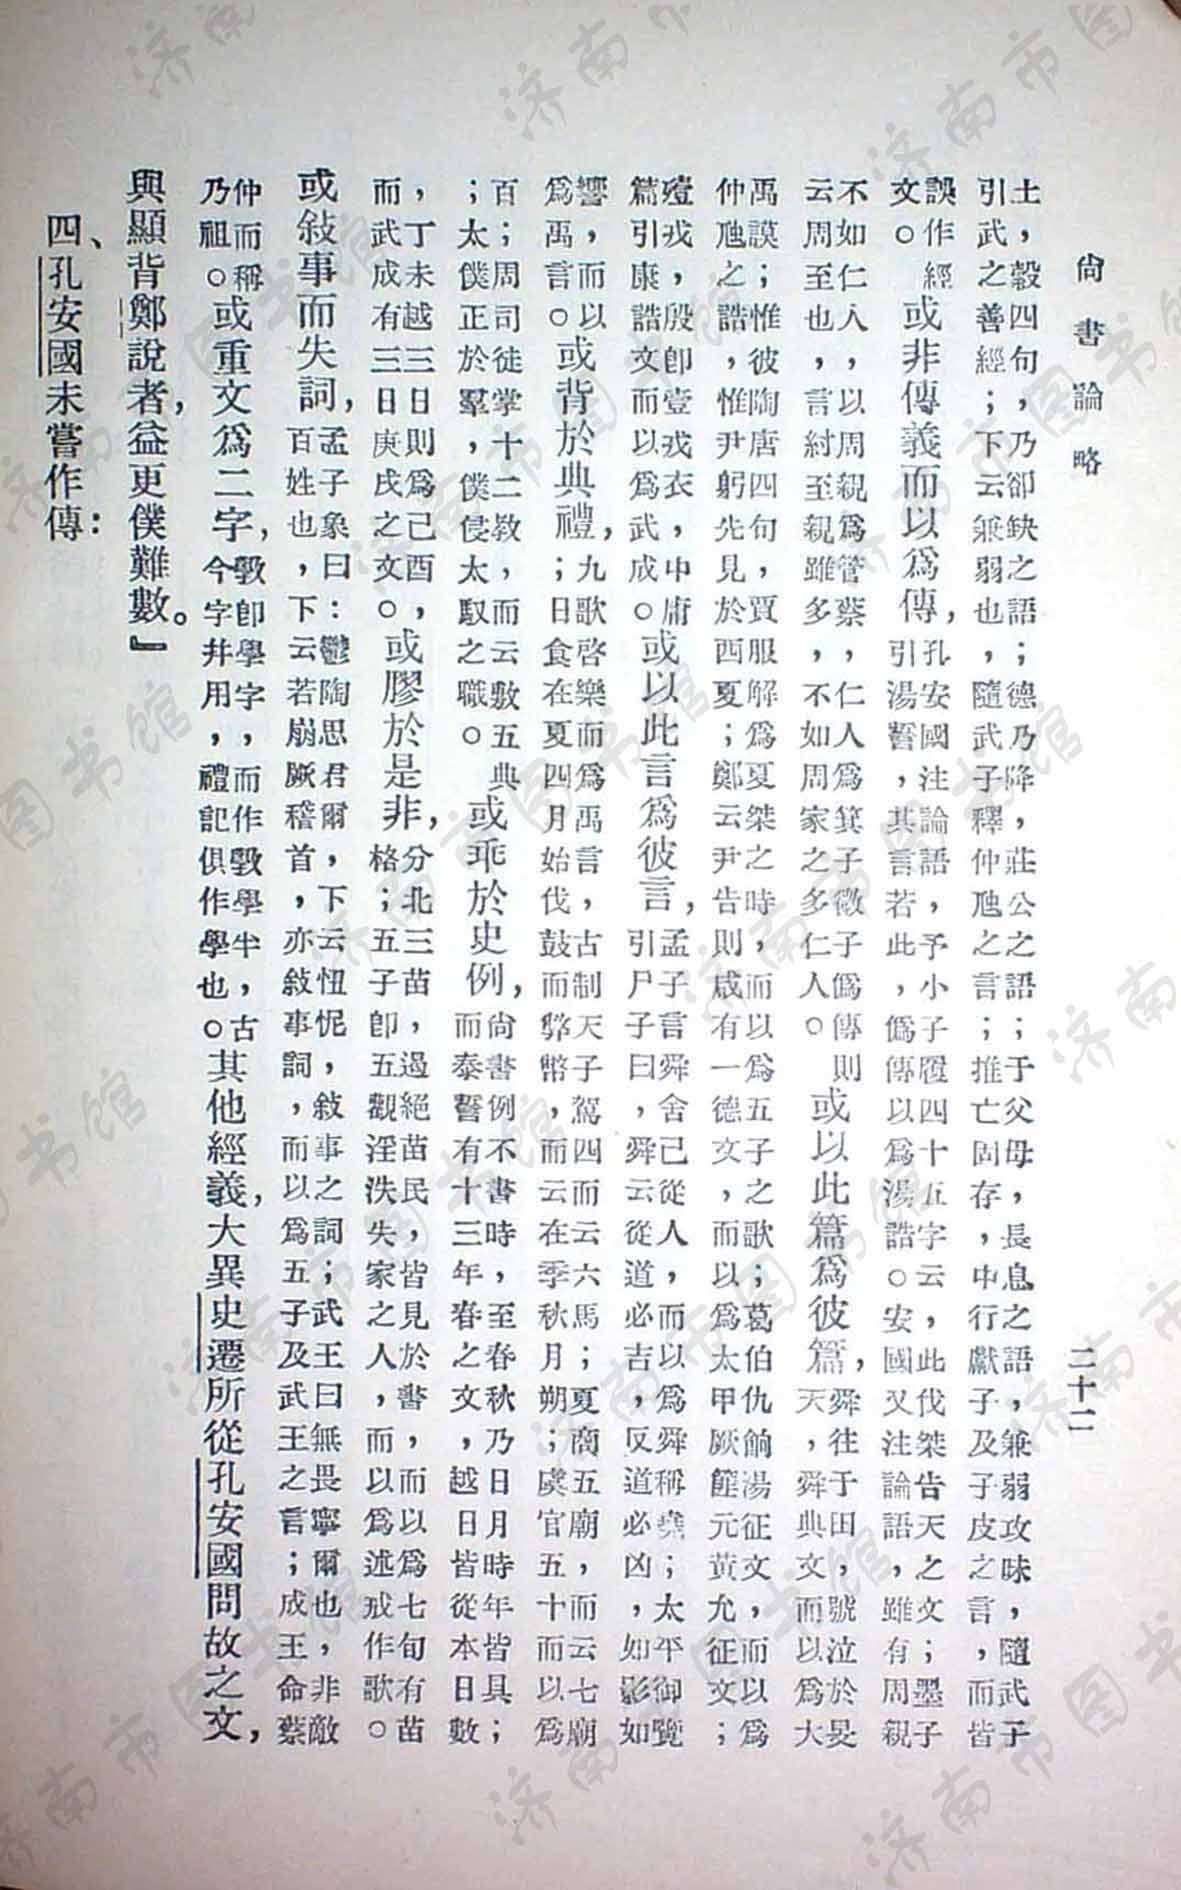 尚書論略
二十二
土，穀四句，乃卻缺之語；德乃降，莊公之語；于父母，長息之語，兼弱攻昧，隨武子
引武之善經；下云兼弱也，隨武子釋仲虺之言；推亡固存，中行獻子及子皮之言，而皆
誤作經
文。
或非傳義而以爲傳，
孔安國注論語，予小子履四十五字云，此伐桀告天之文；墨子
引湯誓，其言若此，僞傳以爲湯誥。安國又注論語，雖有周親
不如仁人，以周親爲管蔡，仁人爲箕子微子僞傳則
云周至也，言紂至親雖多，不如周家之多仁人。
或以此篇爲彼篇，
舜往于田，號泣於旻
天，舜典文，而以爲大
禹謨；惟彼陶唐四句，賈服解爲夏桀之時，而以爲五子之歌；葛伯仇餉湯征文，而以爲
仲虺之誥，惟尹躬先見於西夏；鄭云尹告則咸有一德文，而以爲太甲厥篚元黃允，征文；
殪戎，殷卽壹戎衣，中庸
篇引康誥文而以爲武成。
或以此言爲彼言，
孟子言舜舍己從人，而以爲舜稱堯；太平御覽
引尸子曰，舜云從道必吉，反道必凶，如影如
響，而以
爲禹言。
或背於典禮，
九歌啓樂而爲禹言，古制天子駕四而云六馬；夏商五廟，而云七廟
；日食在夏四月始伐，鼓而幣，而云在季秋月朔；虞官五十而以爲
百；周司徒掌十二敎，而云敷五典
；太僕正於羣，僕侵太馭之職。
或乖於史例，
尚書例不書時，至春秋乃日月時年皆具；
而泰誓有十三年春之文，越日皆從本日數
，丁未越三日則爲己酉，
而武成有三日庚戌之文。
或膠於是非，
分北三苗，過絕苗民，皆見於書，而以爲七旬有苗
格；五子卽五觀淫泆失家之人，而以爲述戒作歌。
或敍事而失詞，
孟子象曰：鬱陶思君爾，下云忸怩，敍事之詞；武王曰無畏寧爾也，非敵
百姓也，下云若崩厥稽首，亦敍事詞，而以爲五子及武王之言；成王命蔡
仲而稱
乃祖。
或重文爲二字，
斅卽學字，而作斅學半，古
今字井用，禮記俱作學也。
其他經義，大異史遷所從孔安國問故之文，
興顯背鄭說者，益更僕難數。』
四、孔安國未嘗作傳：